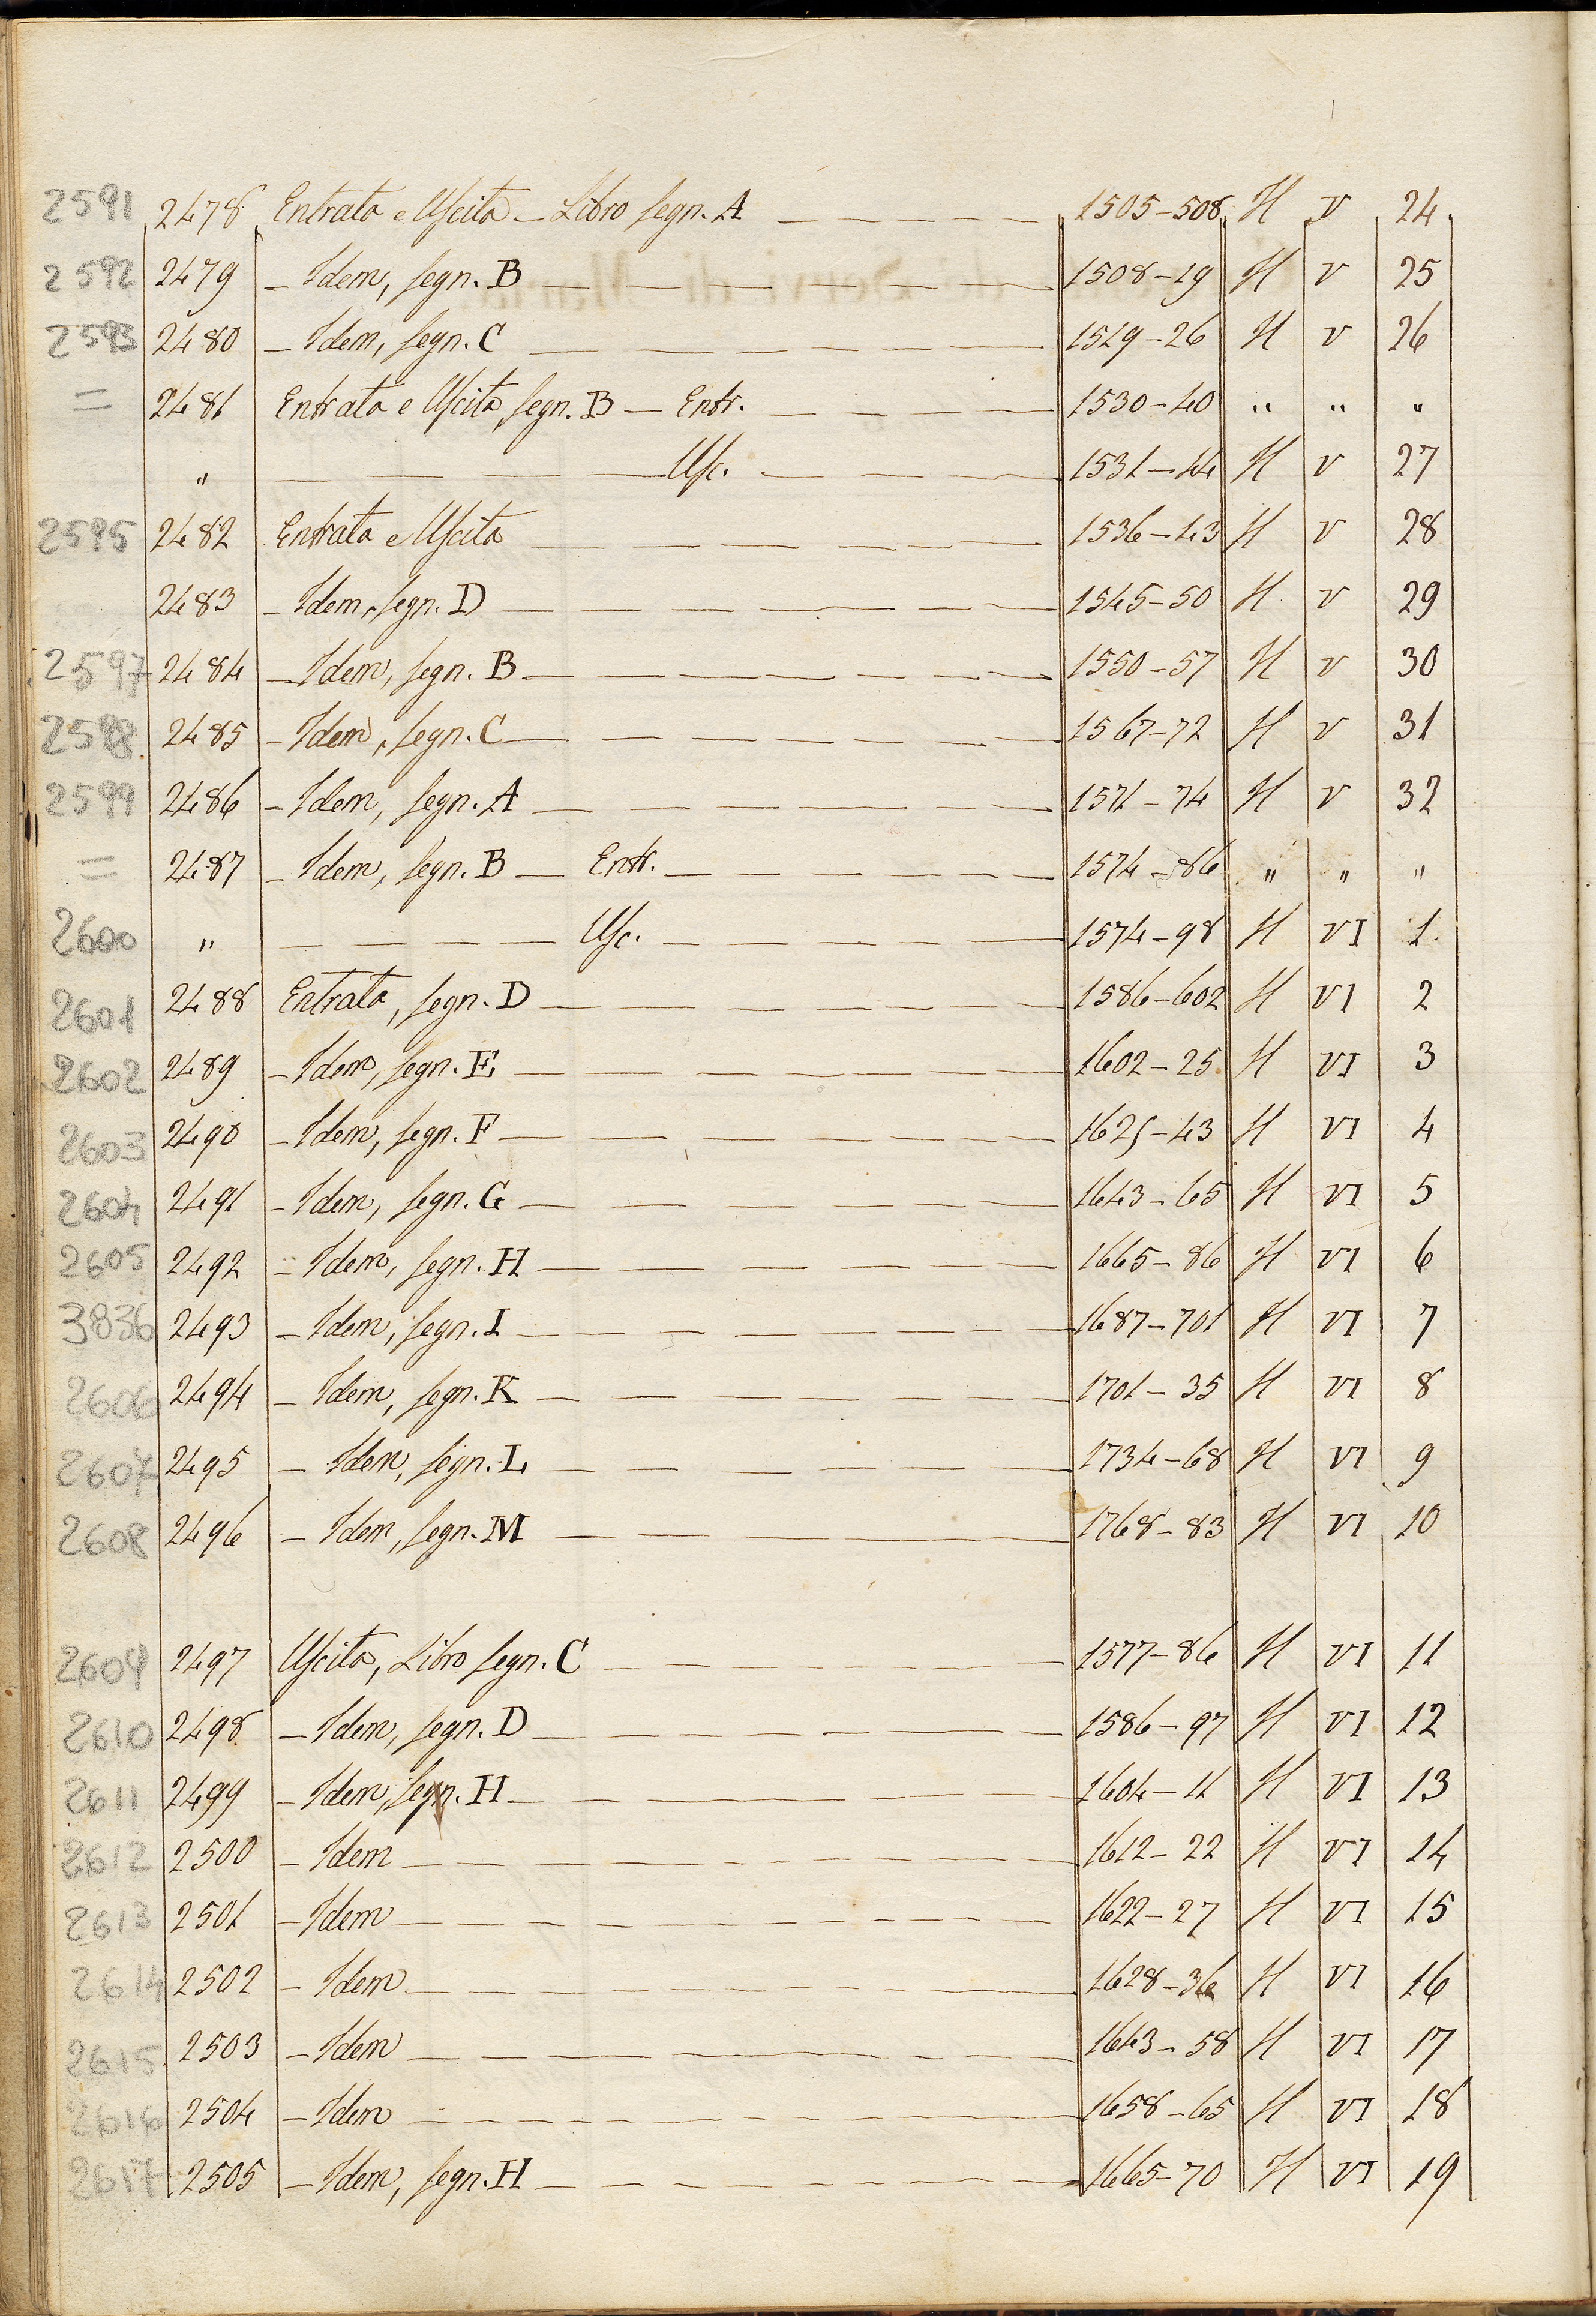 2591 2478 Entrata e Uscita – Libro segn. A 1505–508 H V 24
2592 2479 – Idem, segn. B 1508–19 H V 25
2593 2480 – Idem, segn. C 1519–26 H V 26
= 2481 Entrata e Uscita, segn. B — Entr. 1530–40 " " "
" Usc. 1531–44 H V 27
2595 2482 Entrata e Uscita 1536–43 H V 28
2483 – Idem, segn. D 1545–50 H V 29
2597 2484 – Idem, segn. B 1550–57 H V 30
2598 2485 – Idem, segn. C 1567–72 H V 31
2599 2486 – Idem, segn. A 1571–74 H V 32
= 2487 – Idem, segn. B — Entr. 1574–86 " " "
2600 " Usc. 1574–98 H VI 1
2601 2488 Entrata, segn. D 1586–602 H VI 2
2602 2489 – Idem, segn. E 1602–25 H VI 3
2603 2490 – Idem, segn. F 1625–43 H VI 4
2604 2491 – Idem, segn. G 1643–65 H VI 5
2605 2492 – Idem, segn. H 1665–86 H VI 6
3836 2493 – Idem, segn. I 1687–701 H VI 7
2606 2494 – Idem, segn. K 1701–35 H VI 8
2607 2495 – Idem, segn. L 1734–68 H VI 9
2608 2496 – Idem, segn. M 1768–83 H VI 10
2609 2497 Uscita, Libro segn. C 1577–86 H VI 11
2610 2498 – Idem, segn. D 1586–97 H VI 12
2611 2499 – Idem, segn. H 1604–11 H VI 13
2612 2500 – Idem 1612–22 H VI 14
2613 2501 – Idem 1622–27 H VI 15
2614 2502 – Idem 1628–36 H VI 16
2615 2503 – Idem 1643–58 H VI 17
2616 2504 – Idem 1658–65 H VI 18
2617 2505 – Idem, segn. H 1665–70 H VI 19